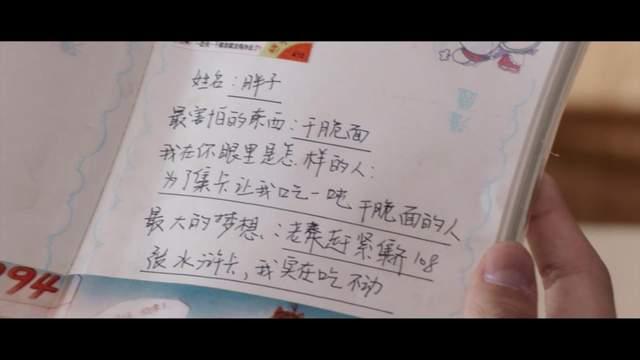 姓名:胖子
最害怕的东西:干脆面
我在你眼里是怎样的人:
为了集卡让我吃一吨干脆面的人
最大的梦想:老秦赶紧集齐108
张水浒卡,我实在吃不动
94